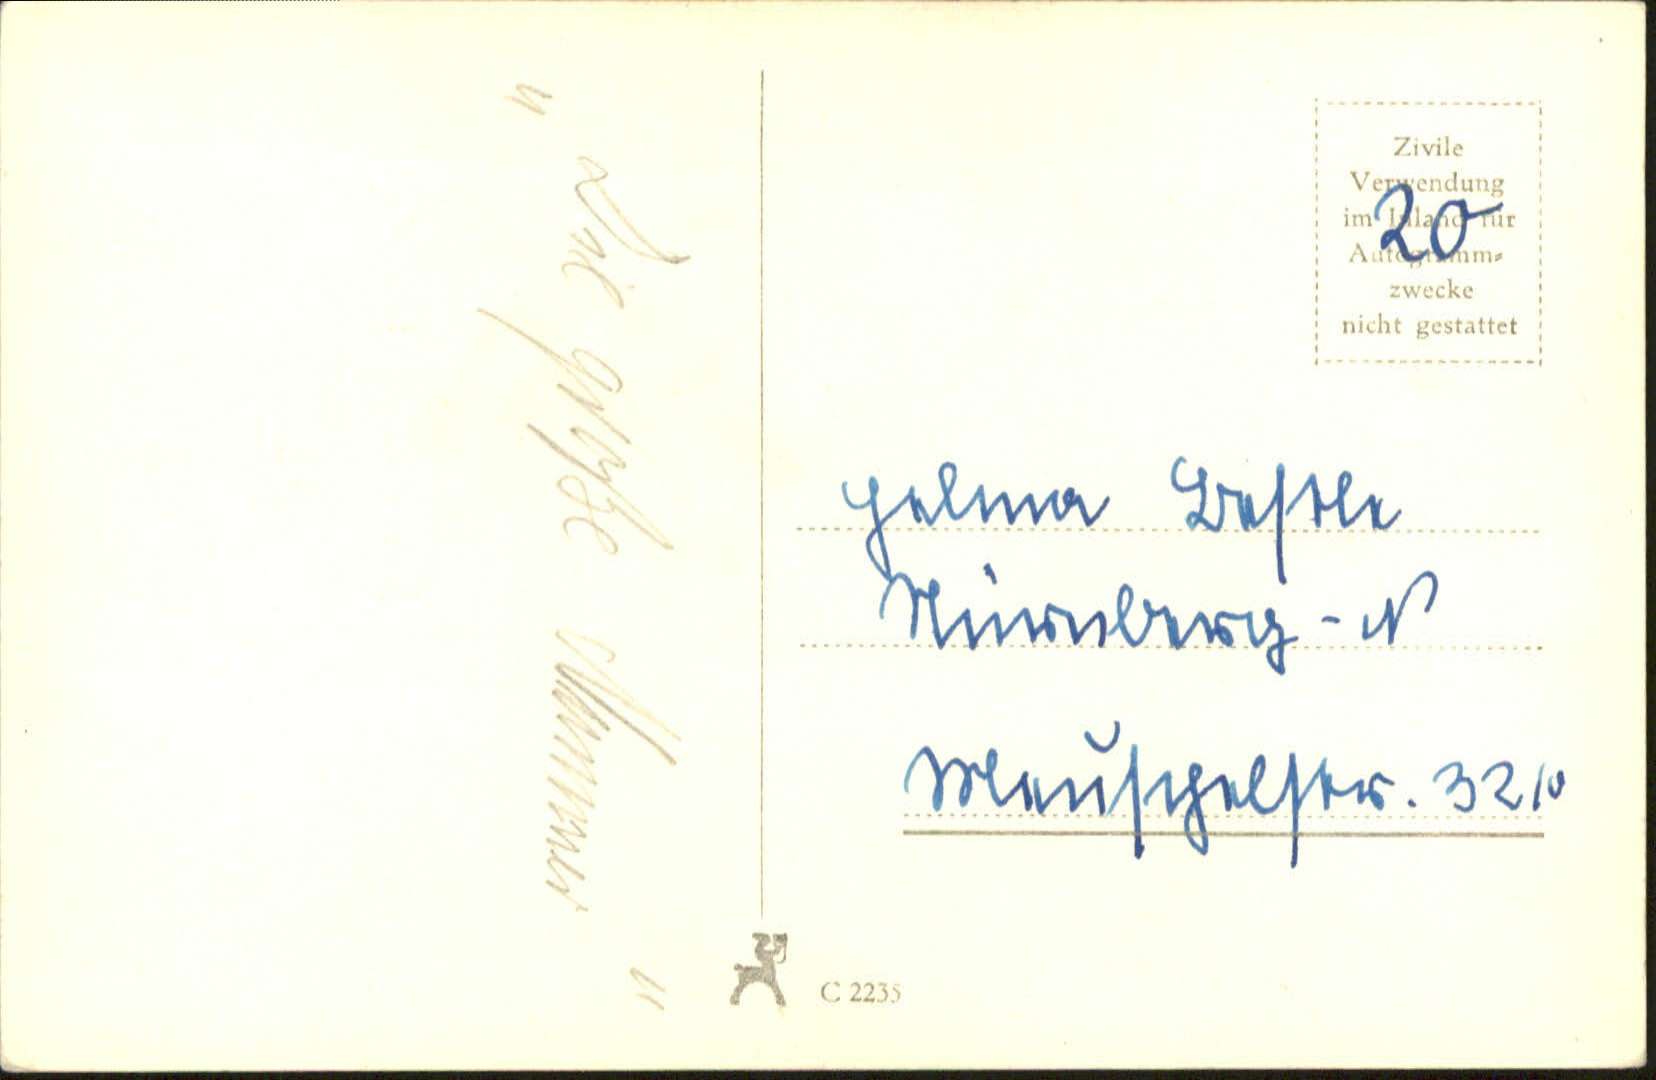 " Die große Nummer "
Zivile
Verwendung
im Inland für
Autogramm-
zwecke
nicht gestattet
20
Helma Bestle
Nürnberg - N
Meuschelstr. 32/0
C 2235